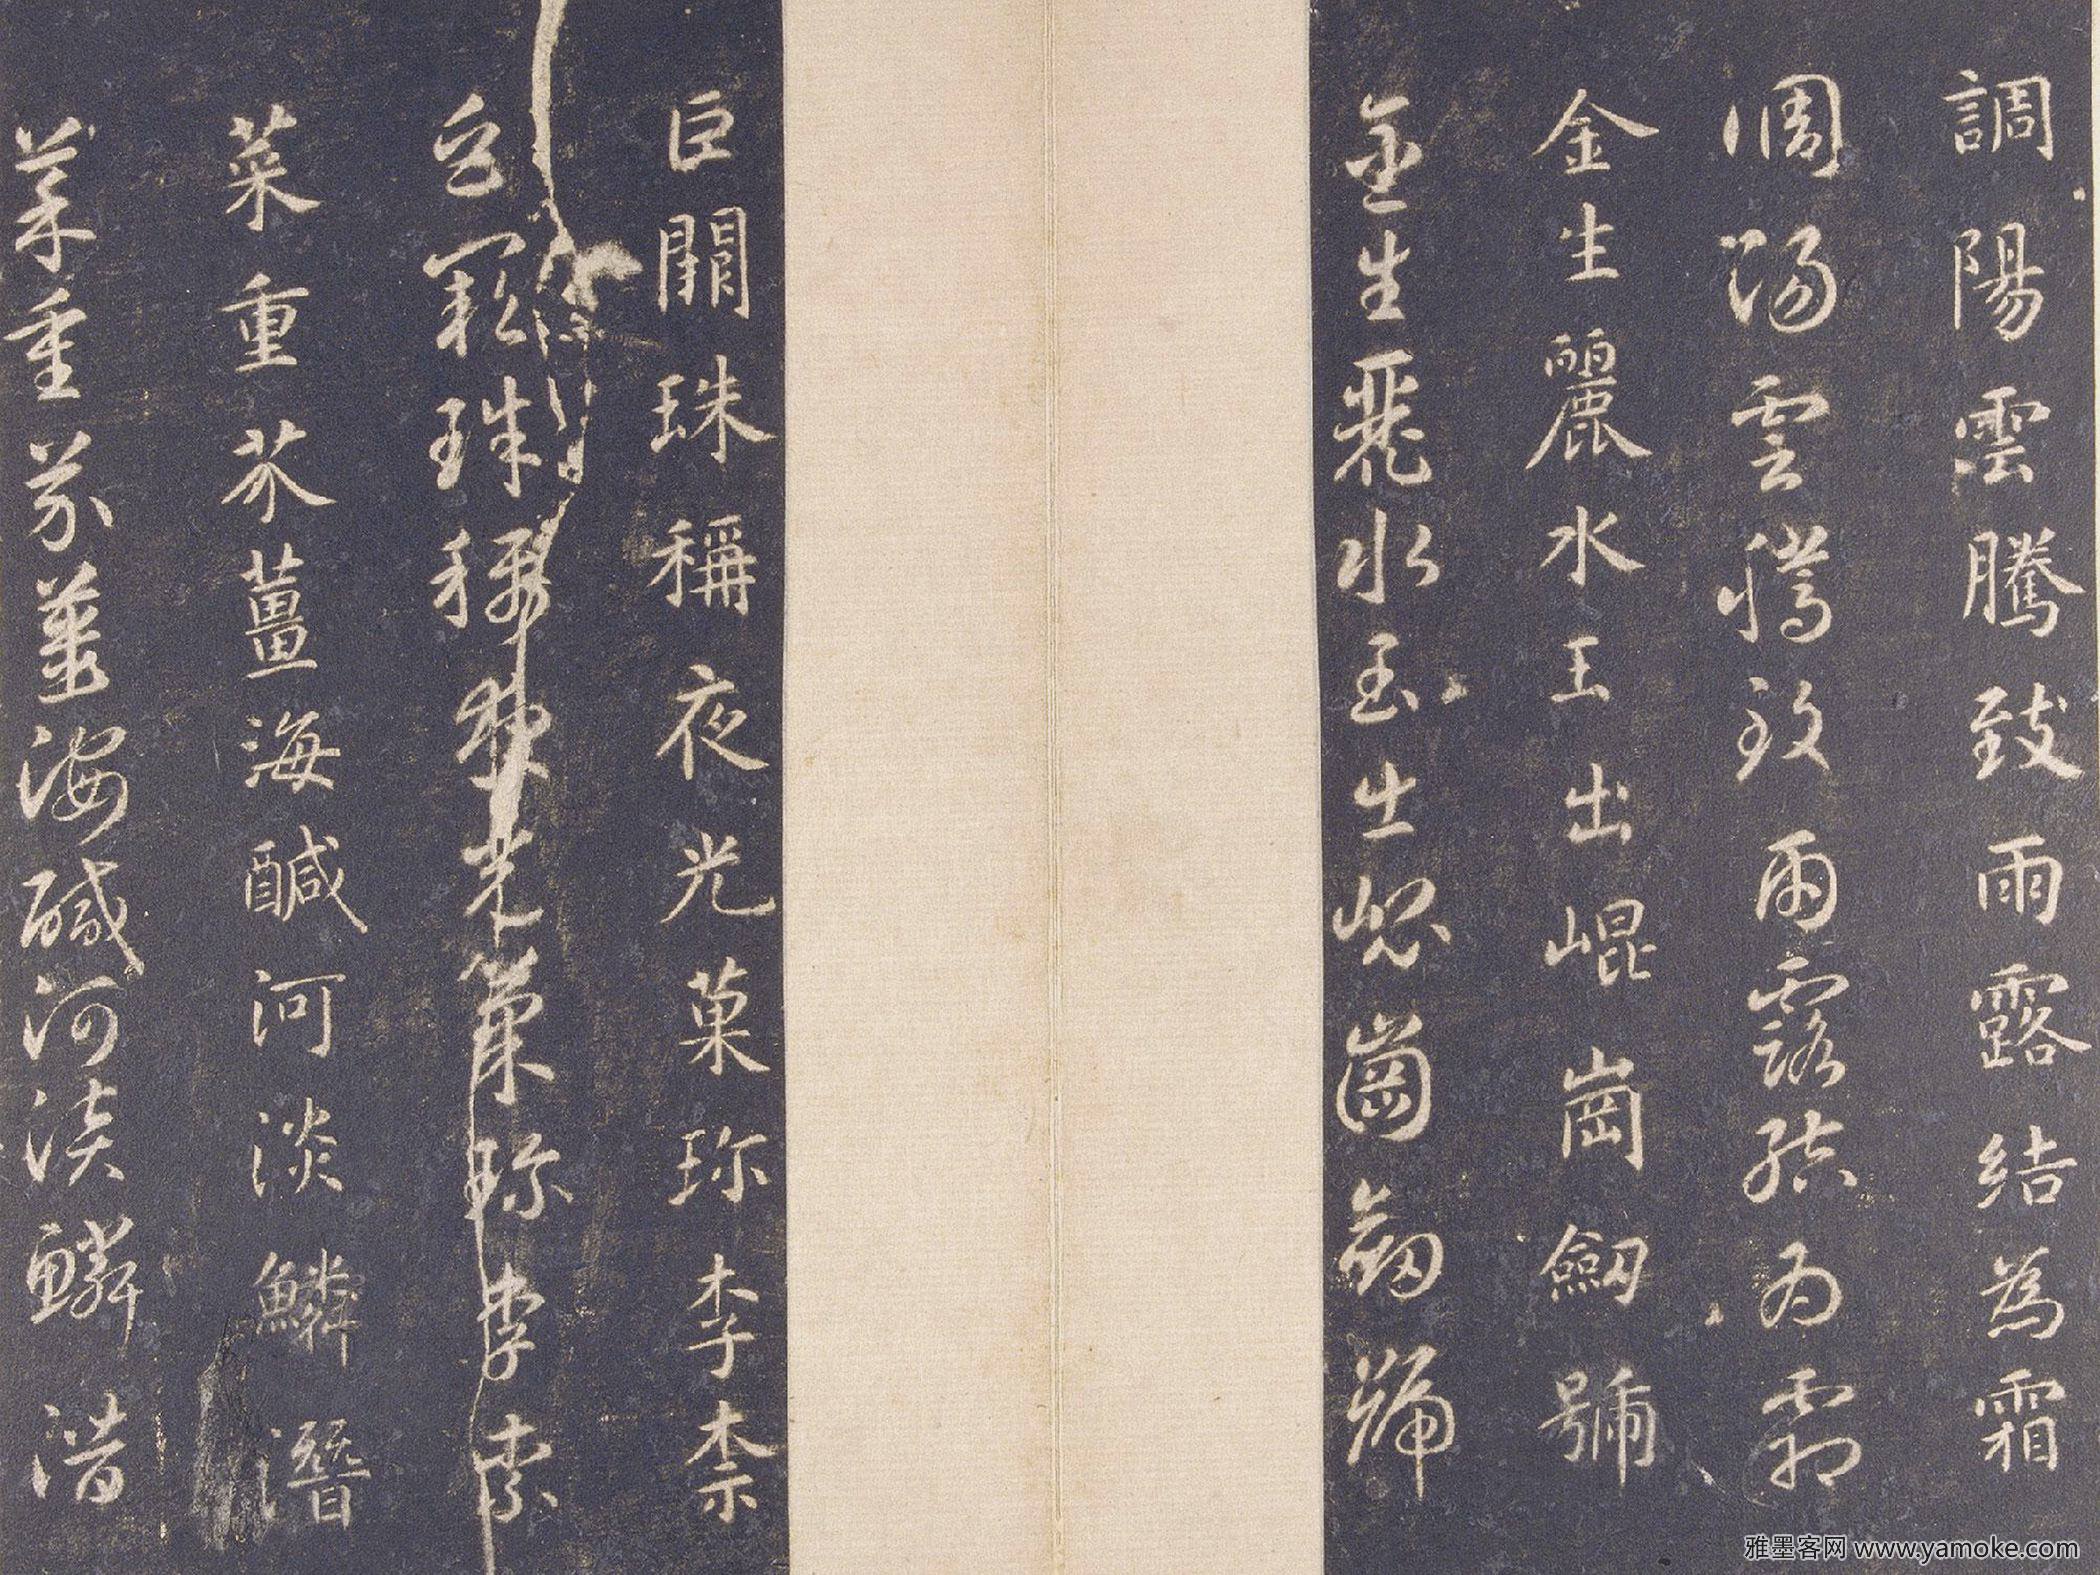 調陽雲騰致雨露結為霜
調陽雲騰致雨露結為霜
金生麗水玉出崐崗劔號
金生麗水玉出崐崗劔號
巨闕珠稱夜光菓珎李柰
巨闕珠稱夜光菓珎李柰
菜重芥薑海鹹河淡鱗潛
菜重芥薑海鹹河淡鱗潛
雅墨客网 www.yamoke.com